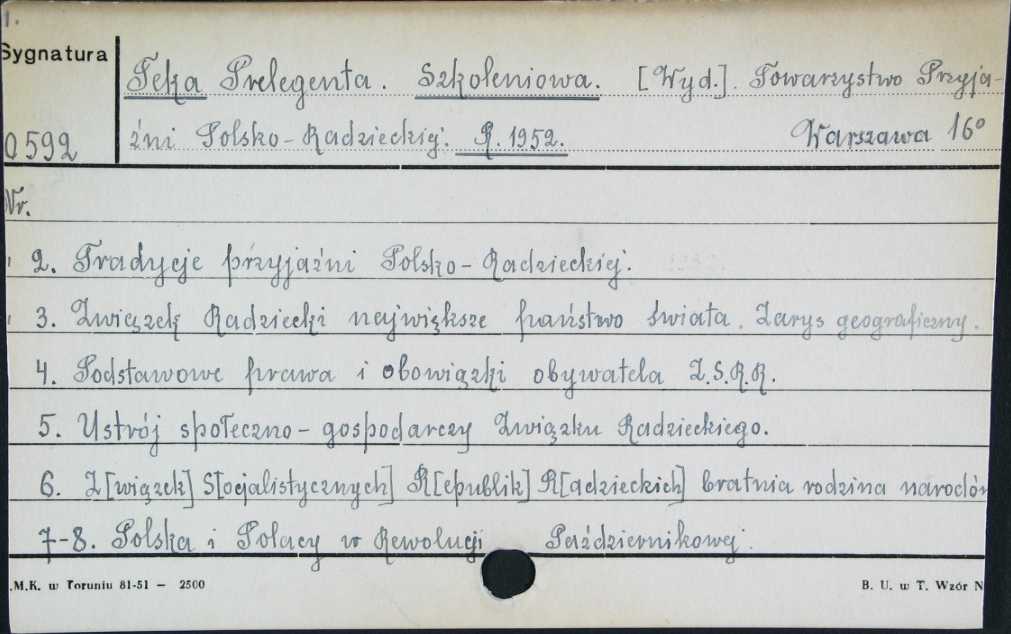 1.
Sygnatura
Teka Prelegenta. Szkoleniowa. [Wyd.] Towarzystwo Przyja-
0592 źni Polsko-Radzieckiej. R. 1952. Warszawa 16°
Nr.
2. Tradycje przyjaźni Polsko-Radzieckiej.
3. Związek Radziecki największe państwo świata. Zarys geograficzny.
4. Podstawowe prawa i obowiązki obywatela Z.S.R.R.
5. Ustrój społeczno-gospodarczy Związku Radzieckiego.
6. Z[wiązek] S[ocjalistycznych] R[epublik] R[adzieckich] bratnia rodzina narodów
7-8. Polska i Polacy w Rewolucji Październikowej.
.M.K. w Toruniu 81-51 — 2500 B. U. w T. Wzór N